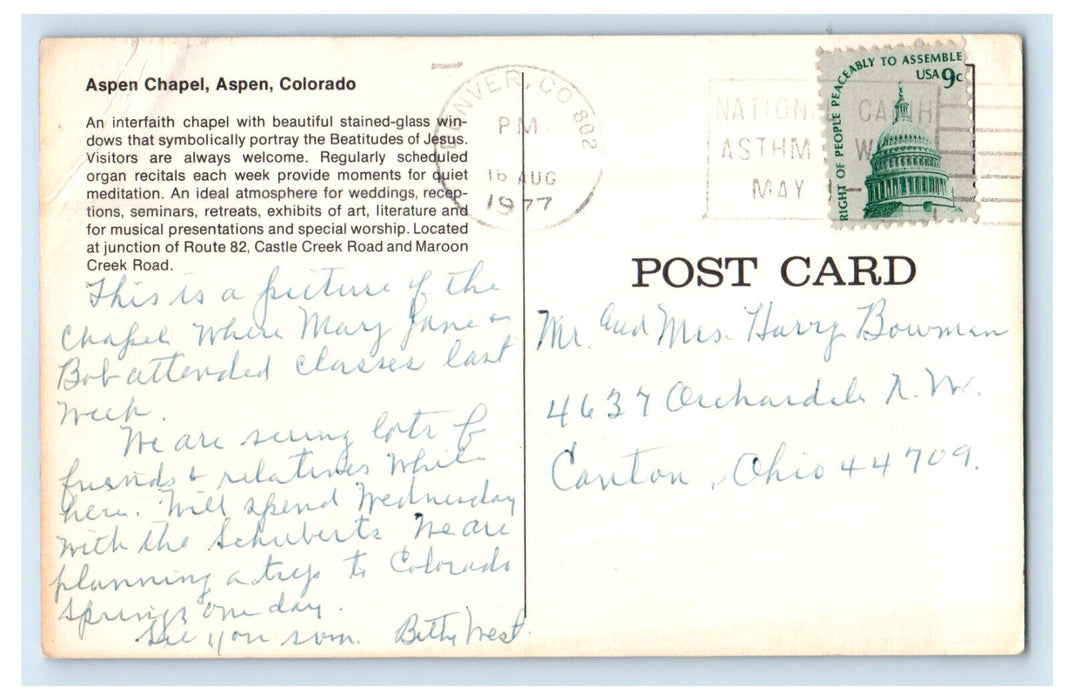 Aspen Chapel, Aspen, Colorado
An interfaith chapel with beautiful stained-glass win-
dows that symbolically portray the Beatitudes of Jesus.
Visitors are always welcome. Regularly scheduled
organ recitals each week provide moments for quiet
meditation. An ideal atmosphere for weddings, recep-
tions, seminars, retreats, exhibits of art, literature and
for musical presentations and special worship. Located
at junction of Route 82, Castle Creek Road and Maroon
Creek Road.
This is a picture of the
Chapel where Mary Jane &
Bob attended classes last
week.
We are seeing lots of
friends & relatives while
here. Will spend Wednesday
with the Schuberts. We are
planning a trip to Colorado
Springs one day.
See you soon. Betty West.
DENVER, CO 802
PM
16 AUG
1977
NATION
ASTHM
MAY
RIGHT OF PEOPLE PEACEABLY TO ASSEMBLE
USA 9c
POST CARD
Mr. and Mrs. Harry Bowman
4637 Orchardale N.W.
Canton, Ohio 44709.